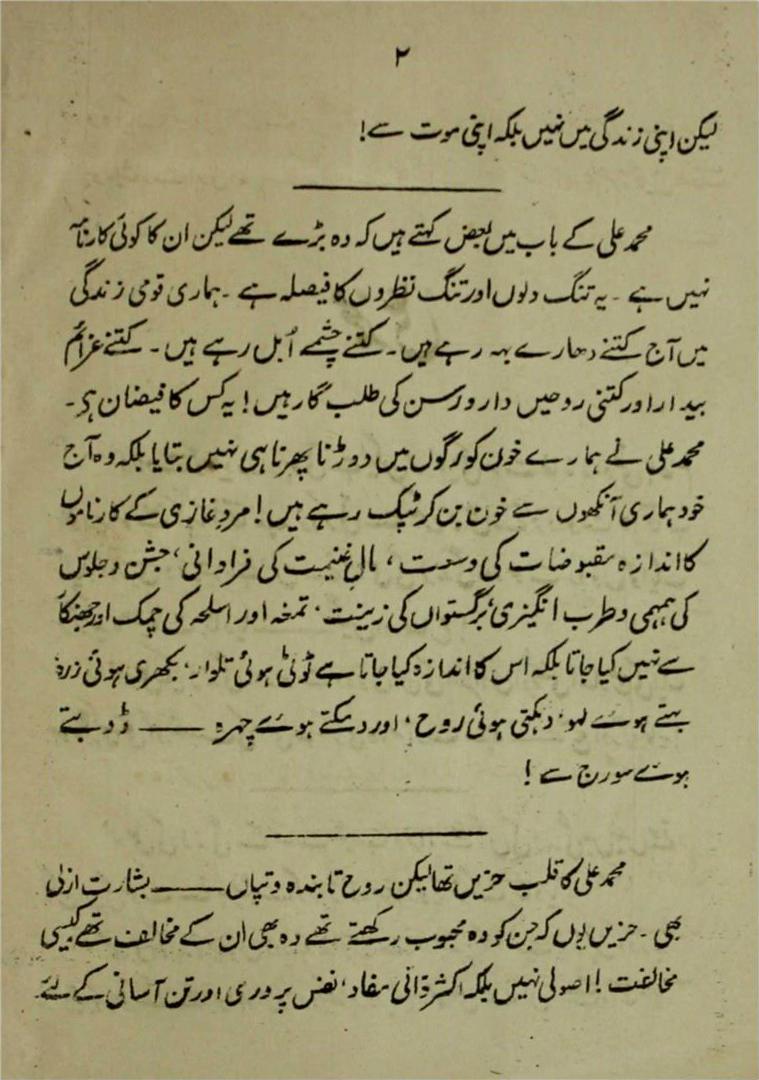 ۲
لیکن اپنی زندگی میں نہیں بلکہ اپنی موت سے!
محمد علی کے باب میں بعض کہتے ہیں کہ وہ بڑے تھے لیکن ان کا کوئی کارنامہ
نہیں ہے ۔ یہ تنگ دلوں اور تنگ نظروں کا فیصلہ ہے ۔ ہماری قومی زندگی
میں آج کتنے دھارے بہہ رہے ہیں۔ کتنے چشمے اُبل رہے ہیں ۔ کتنے عزائم
بیدار اور کتنی روحیں دار و رسن کی طلب گار ہیں! یہ کس کا فیضان ہی ۔
محمد علی نے ہمارے خون کو رگوں میں دوڑنا پھرنا ہی نہیں بتایا بلکہ وہ آج
خود ہماری آنکھوں سے خون بن کر ٹپک رہے ہیں! مردِ غازی کے کارناموں
کا اندازہ مقبوضات کی وسعت ، مالِ غنیمت کی فراوانی ، جشن و جلوس
کی ہمہمی و طرب انگیزی، برگستواں کی زینت ، تمغہ اور اسلحہ کی چمک اور جھنکار
سے نہیں کیا جاتا بلکہ اس کا اندازہ کیا جاتا ہے ٹوٹی ہوئی تلوار ، بکھری ہوئی زرہ
بہتے ہوئے لہو، دہکتی ہوئی روح ، اور دمکتے ہوئے چہرہ —— ڈوبتے
ہوئے سورج سے !
محمد علی کا قلب حزیں تھا لیکن روح تابندہ و تپاں —— بشارتِ ازلی
بھی ۔ حزیں یوں کہ جن کو وہ محبوب رکھتے تھے وہ بھی ان کے مخالف تھے کیسی
مخالفت ! اصولی نہیں بلکہ اکثر ذاتی مفاد ، نفس پروری اور تن آسانی کے لئے